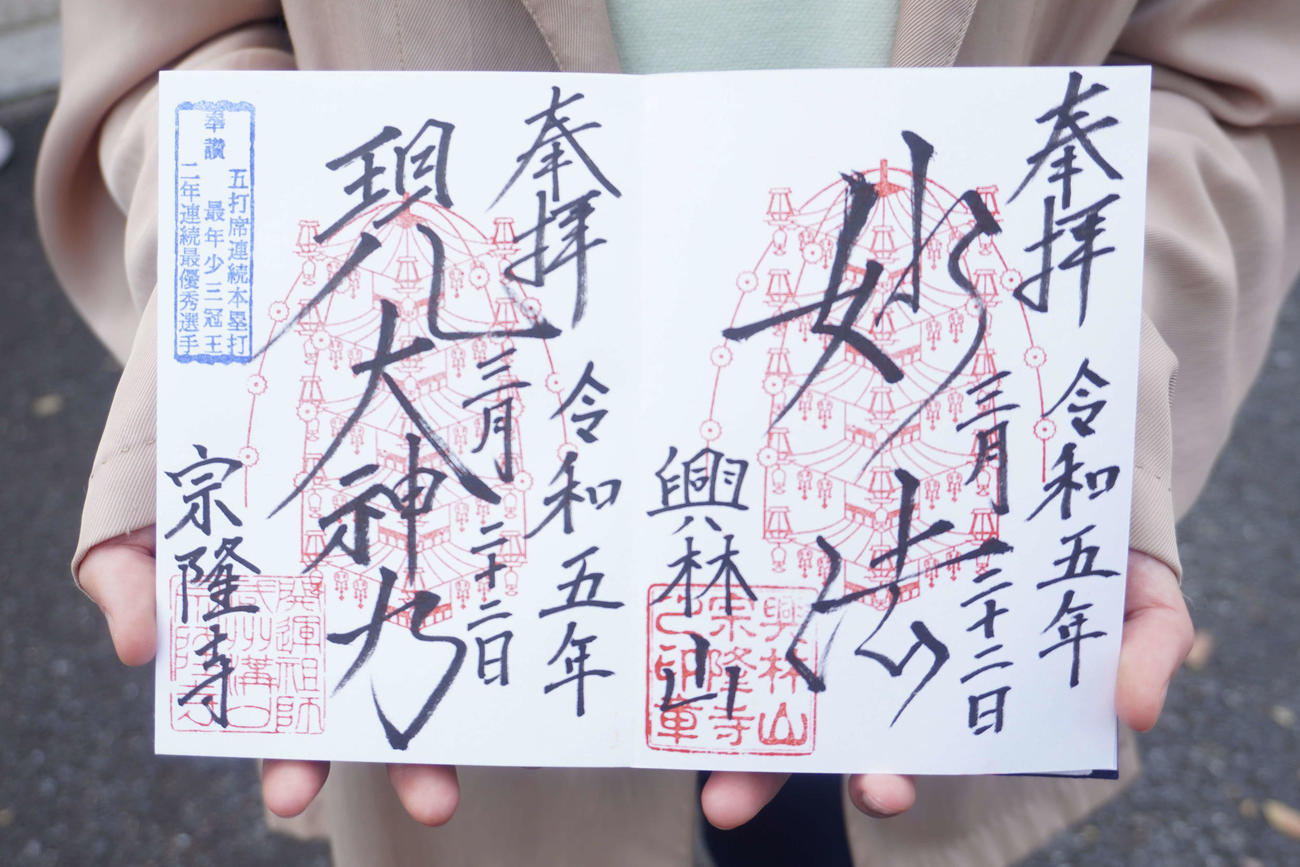 奉拝
令和五年
三月二十二日
妙法
興林山
興林山
宗隆寺
奉拝
令和五年
三月二十二日
現大神力
宗隆寺
開運祖師
武州溝口
奉讃
五打席連続本塁打
最年少三冠王
二年連続最優秀選手